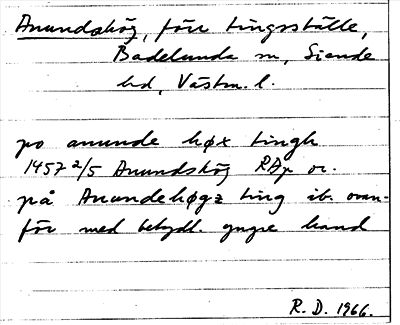 Anundshög, förr tingsställe,
Badelunda sn, Siende
hd, Västm. l.
po anunde høx tingh
1457 2/5 Anundshög RAp or.
på Anundehøgz ting ib. ovan-
för med betydl. yngre hand
R. D. 1966.